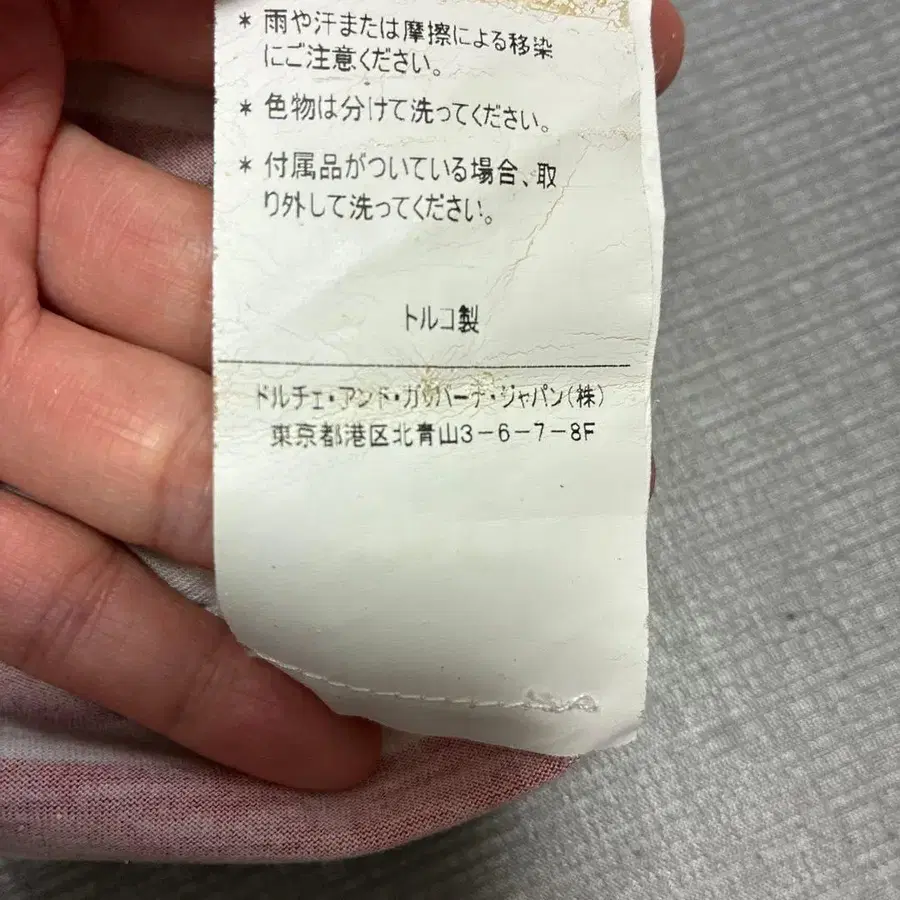 * 雨や汗または摩擦による移染
にご注意ください。
* 色物は分けて洗ってください。
* 付属品がついている場合、取
り外して洗ってください。
トルコ製
ドルチェ・アンド・ガッバーナ・ジャパン(株)
東京都港区北青山3-6-7-8F